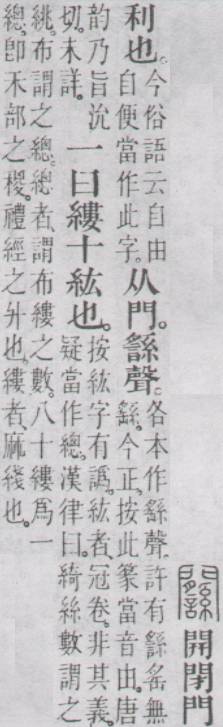 𨷱開閉門
利也。今俗語云自由
自便當作此字。从門。䌛聲。各本作繇聲。許有䌛䍃無
繇。今正。按此篆當音由。唐
韵乃旨沇
切。未詳。一曰縷十紘也。按紘字有譌。紘者、冠卷。非其義。
疑當作總。漢律曰。綺絲數謂之
絩。布謂之總。總者、謂布縷之數。八十縷爲一
總。卽禾部之稯。禮經之升也。縷者、麻綫也。